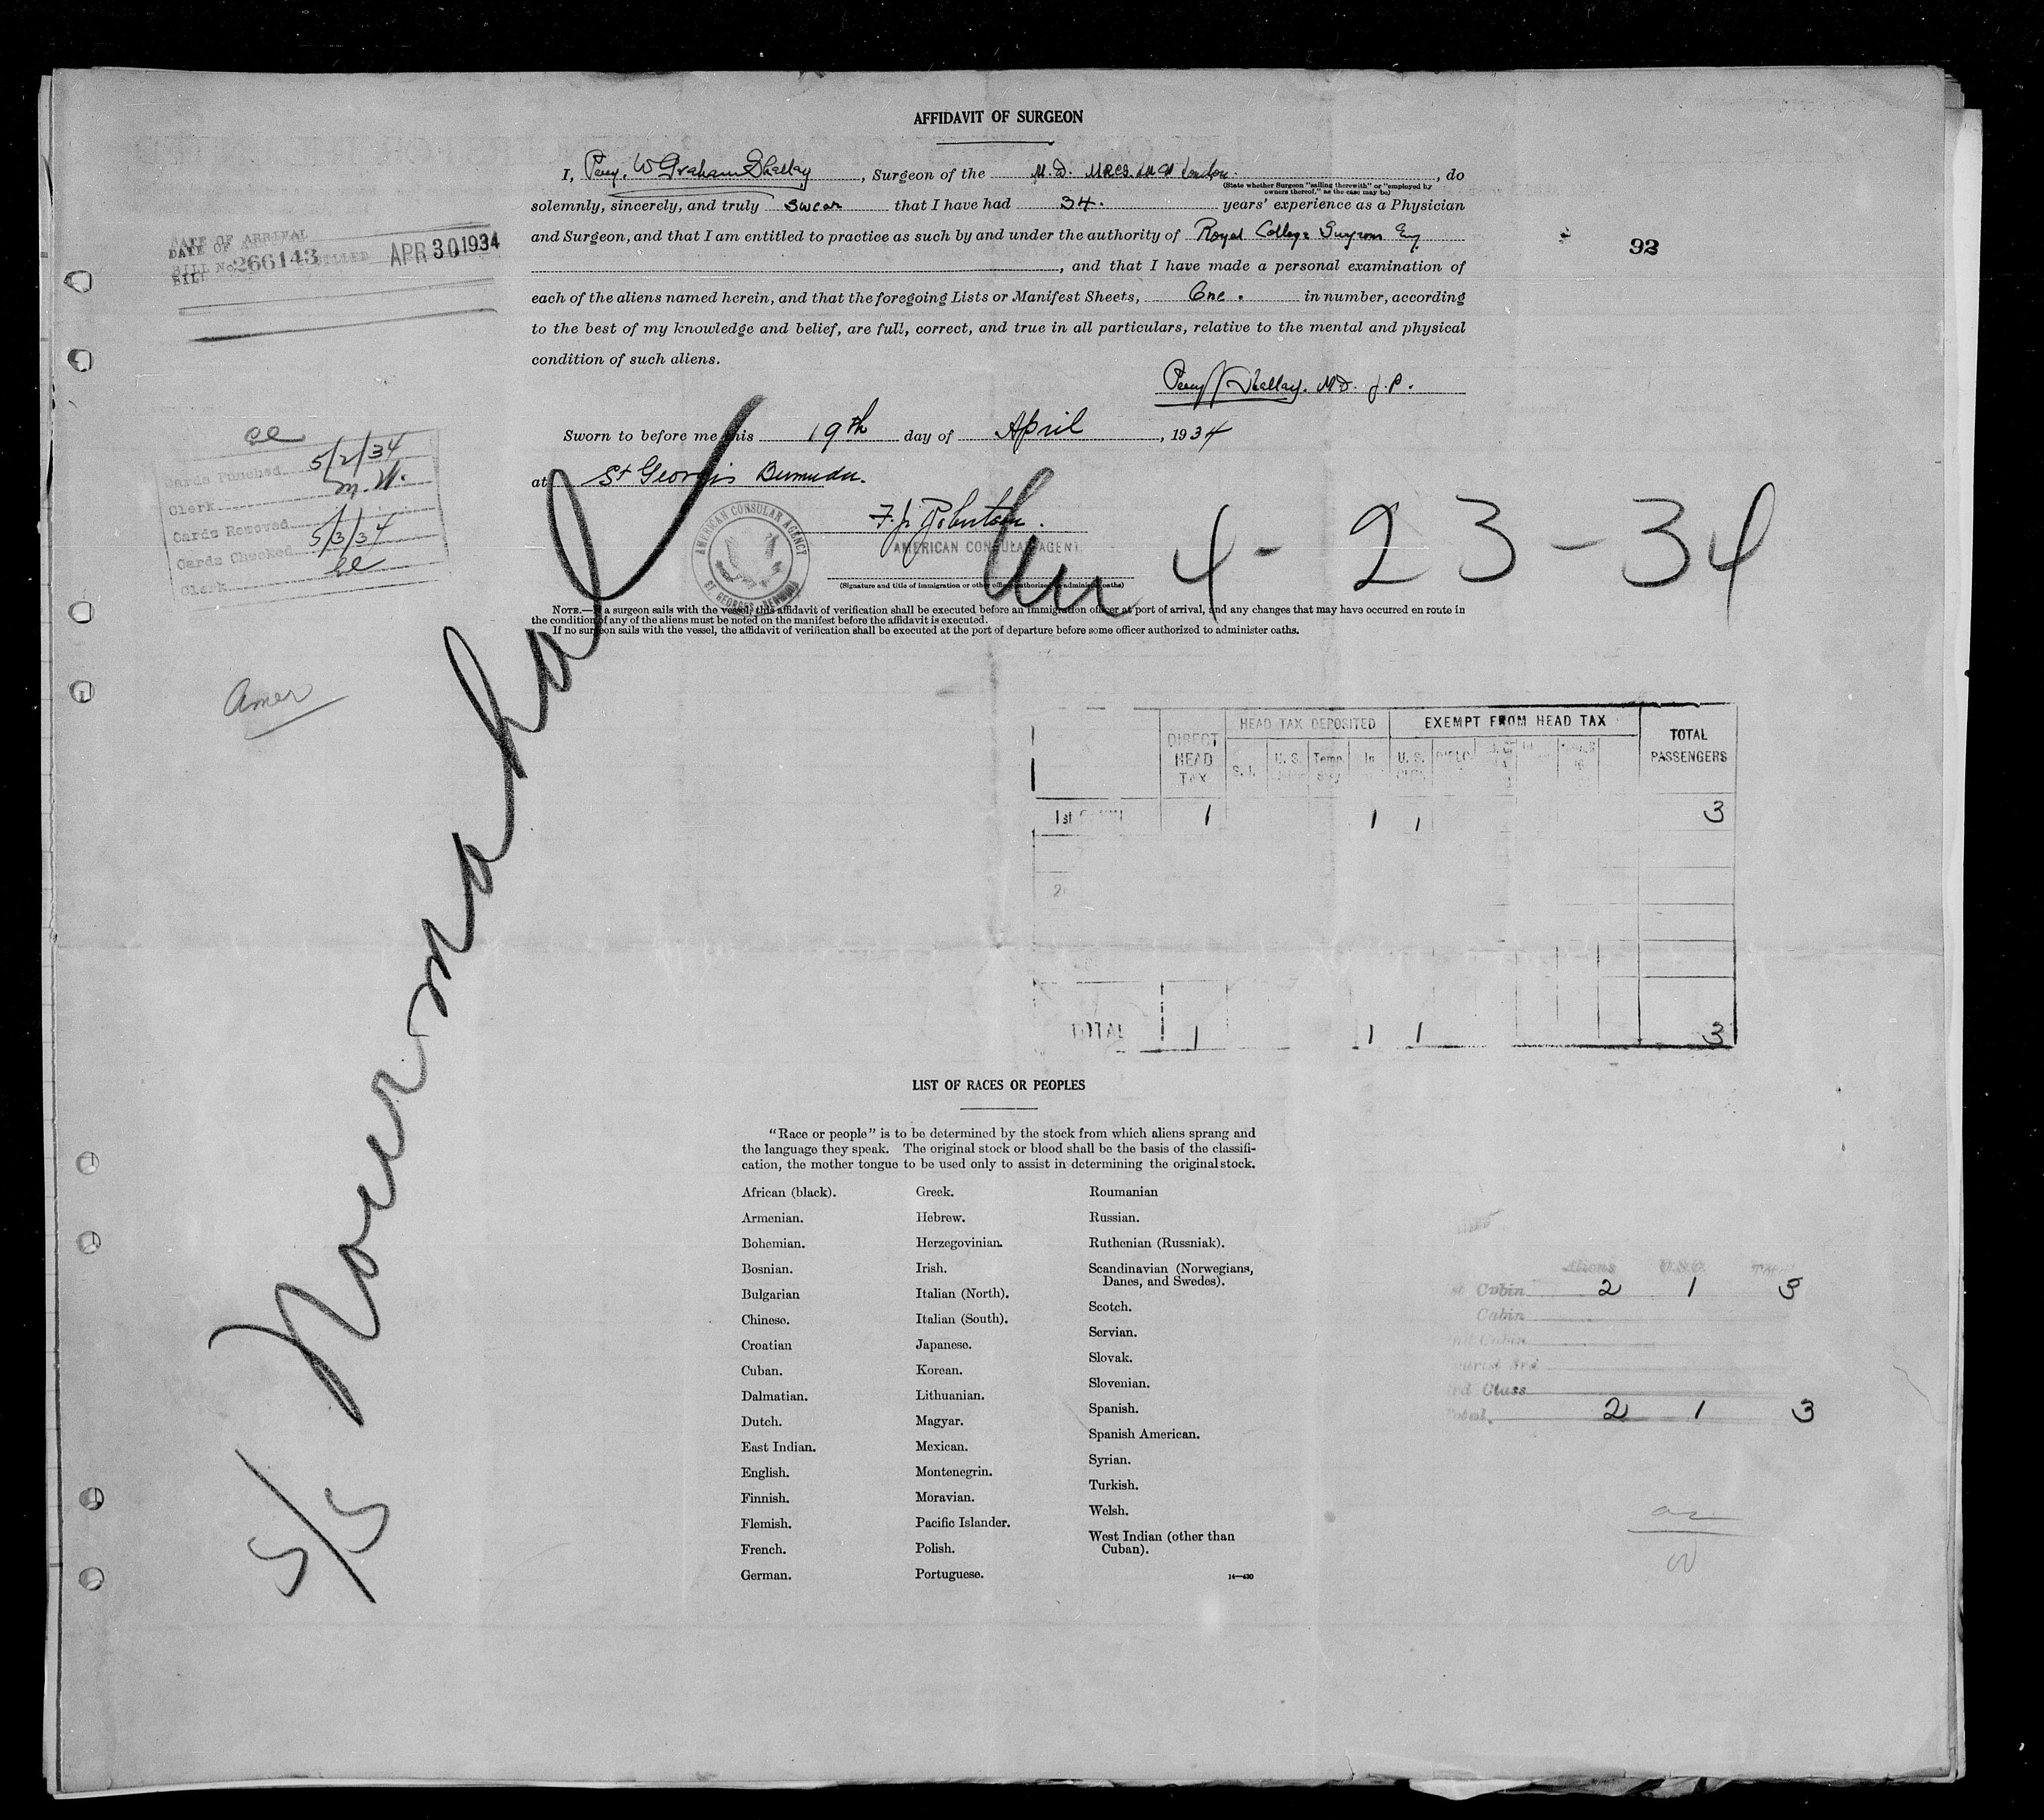 AFFIDAVIT OF SURGEON
I, Percy W Graham, Surgeon of the M.D. MRCS. London., do
(State whether Surgeon "sailing therewith" or "employed by
owners thereof," as the case may be)
solemnly, sincerely, and truly swear that I have had 34. years' experience as a Physician
and Surgeon, and that I am entitled to practice as such by and under the authority of Royal College Surgeons Eng
, and that I have made a personal examination of
each of the aliens named herein, and that the foregoing Lists or Manifest Sheets, One. in number, according
to the best of my knowledge and belief, are full, correct, and true in all particulars, relative to the mental and physical
condition of such aliens.
M.D. J.P.
Sworn to before me this 19th day of April, 1934
at St Georges Bermuda.
AMERICAN CONSULAR AGENCY
ST. GEORGES BERMUDA
F. J. Robertson.
AMERICAN CONSULAR AGENT
(Signature and title of immigration or other officer authorized to administer oaths)
NOTE.—If a surgeon sails with the vessel, this affidavit of verification shall be executed before an immigration officer at port of arrival, and any changes that may have occurred en route in
the condition of any of the aliens must be noted on the manifest before the affidavit is executed.
If no surgeon sails with the vessel, the affidavit of verification shall be executed at the port of departure before some officer authorized to administer oaths.
92
DATE OF ARRIVAL
DATE OF
BILL No. 266143 BILLED APR 30 1934
BILL
ce
Cards Punched 5/2/34
Clerk m. W.
Cards Removed
Cards Checked 5/3/34
Clerk ce
Amer
Nourmahal
4-23-34
5/5
DIRECT HEAD TAX
HEAD TAX DEPOSITED
EXEMPT FROM HEAD TAX
TOTAL PASSENGERS
S. I. U. S. Temp. In U. S. DIPLO.
1st 1 1 1 3
2
TOTAL 1 1 1 3
LIST OF RACES OR PEOPLES
"Race or people" is to be determined by the stock from which aliens sprang and
the language they speak. The original stock or blood shall be the basis of the classifi-
cation, the mother tongue to be used only to assist in determining the original stock.
African (black).
Armenian.
Bohemian.
Bosnian.
Bulgarian
Chinese.
Croatian
Cuban.
Dalmatian.
Dutch.
East Indian.
English.
Finnish.
Flemish.
French.
German.
Greek.
Hebrew.
Herzegovinian.
Irish.
Italian (North).
Italian (South).
Japanese.
Korean.
Lithuanian.
Magyar.
Mexican.
Montenegrin.
Moravian.
Pacific Islander.
Polish.
Portuguese.
Roumanian
Russian.
Ruthenian (Russniak).
Scandinavian (Norwegians,
Danes, and Swedes).
Scotch.
Servian.
Slovak.
Slovenian.
Spanish.
Spanish American.
Syrian.
Turkish.
Welsh.
West Indian (other than
Cuban).
14—430
Aliens U.S.C. Total
Cabin 2 1 3
Cabin
Cabin
3rd Class
Total. 2 1 3